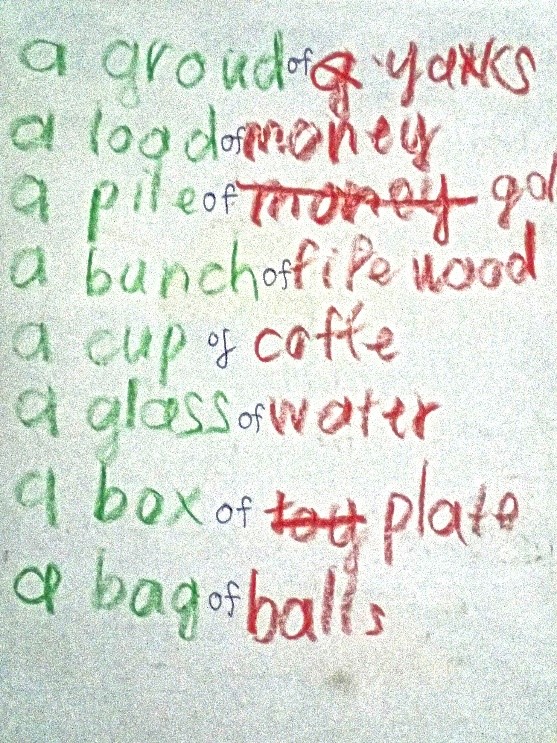 a groud of yaks
a load of money
a pile of money gol
a bunch of fife wood
a cup of coffe
a glass of water
a box of toy plate
a bag of balls